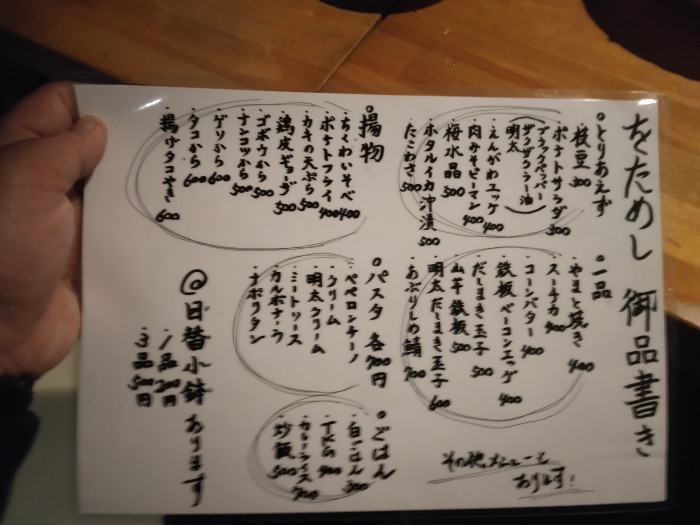 をためし 御品書き
○とりあえず
・枝豆 300
・ポテトサラダ 300
(ブラックペッパー
ザクザクラー油
明太)
・えんがわユッケ 400
・肉みそピーマン 400
・梅水晶 500
・ホタルイカ沖漬 500
・たこわさ 500
○揚物
・ちくわいそべ 400
・ポテトフライ 400
・カキの天ぷら 500
・鶏皮ギョーザ 500
・ゴボウから 500
・ナンコツから 500
・ゲソから 600
・タコから 600
・揚げタコやき 600
○一品
・やまと焼き 400
・スーチカ
・コーンバター 400
・鉄板ベーコンエッグ 400
・だしまき玉子 500
・山芋鉄板 500
・明太だしまき玉子 600
・あぶりしめ鯖 700
○パスタ 各700円
・ペペロンチーノ
・クリーム
・明太クリーム
・ミートソース
・カルボナーラ
・ナポリタン
○ごはん
・白ごはん 300
・TKG 400
・カレーライス 700
・炒飯 500
@日替小鉢あります
・1品 200円
・3品 500円
その他メニューも
あります!